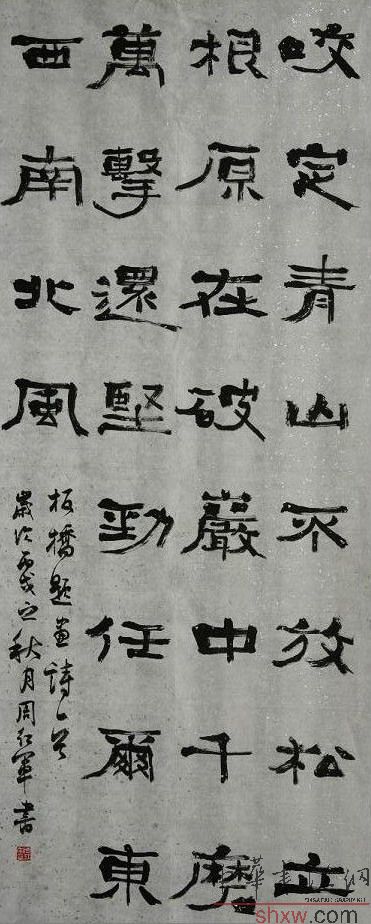 咬定青山不放松立
根原在破巖中千磨
萬擊還堅勁任爾東
西南北風
板橋題畫詩一首
歲次丙戌之秋月周紅軍書
華書 网
shxw.com